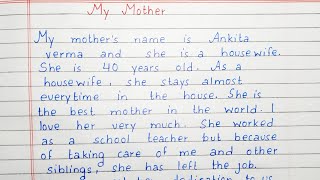 My Mother
My mother's name is Ankita
verma and she is a housewife.
She is 40 years old. As a
housewife, she stays almost
everytime in the house. She is
the best mother in the world. I
love her very much. She worked
as a school teacher but because
of taking care of me and other
siblings, she has left the job.
dedication to us